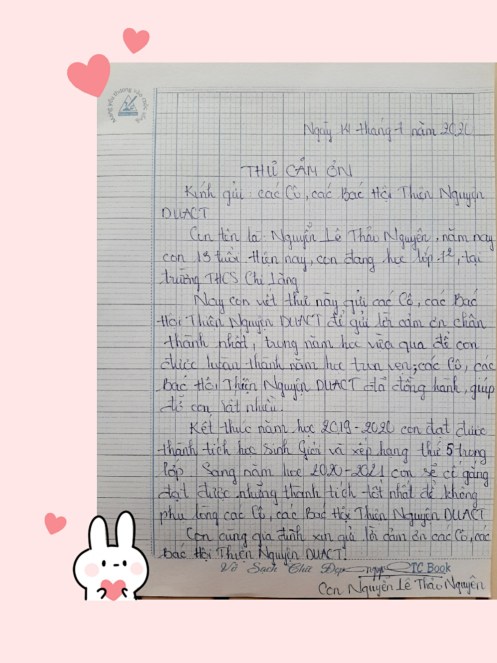 Ngày 14 tháng 7 năm 2020
THƯ CẢM ƠN
Kính gửi: các Cô, các Bác Hội Thiện Nguyện
DUACT
Con tên là: Nguyễn Lê Thảo Nguyên, năm nay
con 13 tuổi. Hiện nay, con đang học lớp 7², tại
trường THCS Chi Lăng
Nay con viết thư này gửi các Cô, các Bác
Hội Thiện Nguyện DUACT để gửi lời cảm ơn chân
thành nhất, trong năm học vừa qua để con
được hoàn thành năm học trọn vẹn; các Cô, các
Bác Hội Thiện Nguyện DUACT đã đồng hành, giúp
đỡ con rất nhiều.
Kết thúc năm học 2019-2020 con đạt được
thành tích học Sinh Giỏi và xếp hạng thứ 5 trong
lớp. Sang năm học 2020-2021 con sẽ cố gắng
đạt được những thành tích tốt nhất để không
phụ lòng các Cô, các Bác Hội Thiện Nguyện DUACT
Con cùng gia đình xin gửi lời cảm ơn các Cô, các
bác Hội Thiện Nguyện DUACT!
Vở Sạch Chữ Đẹp TC Book
Con Nguyễn Lê Thảo Nguyên